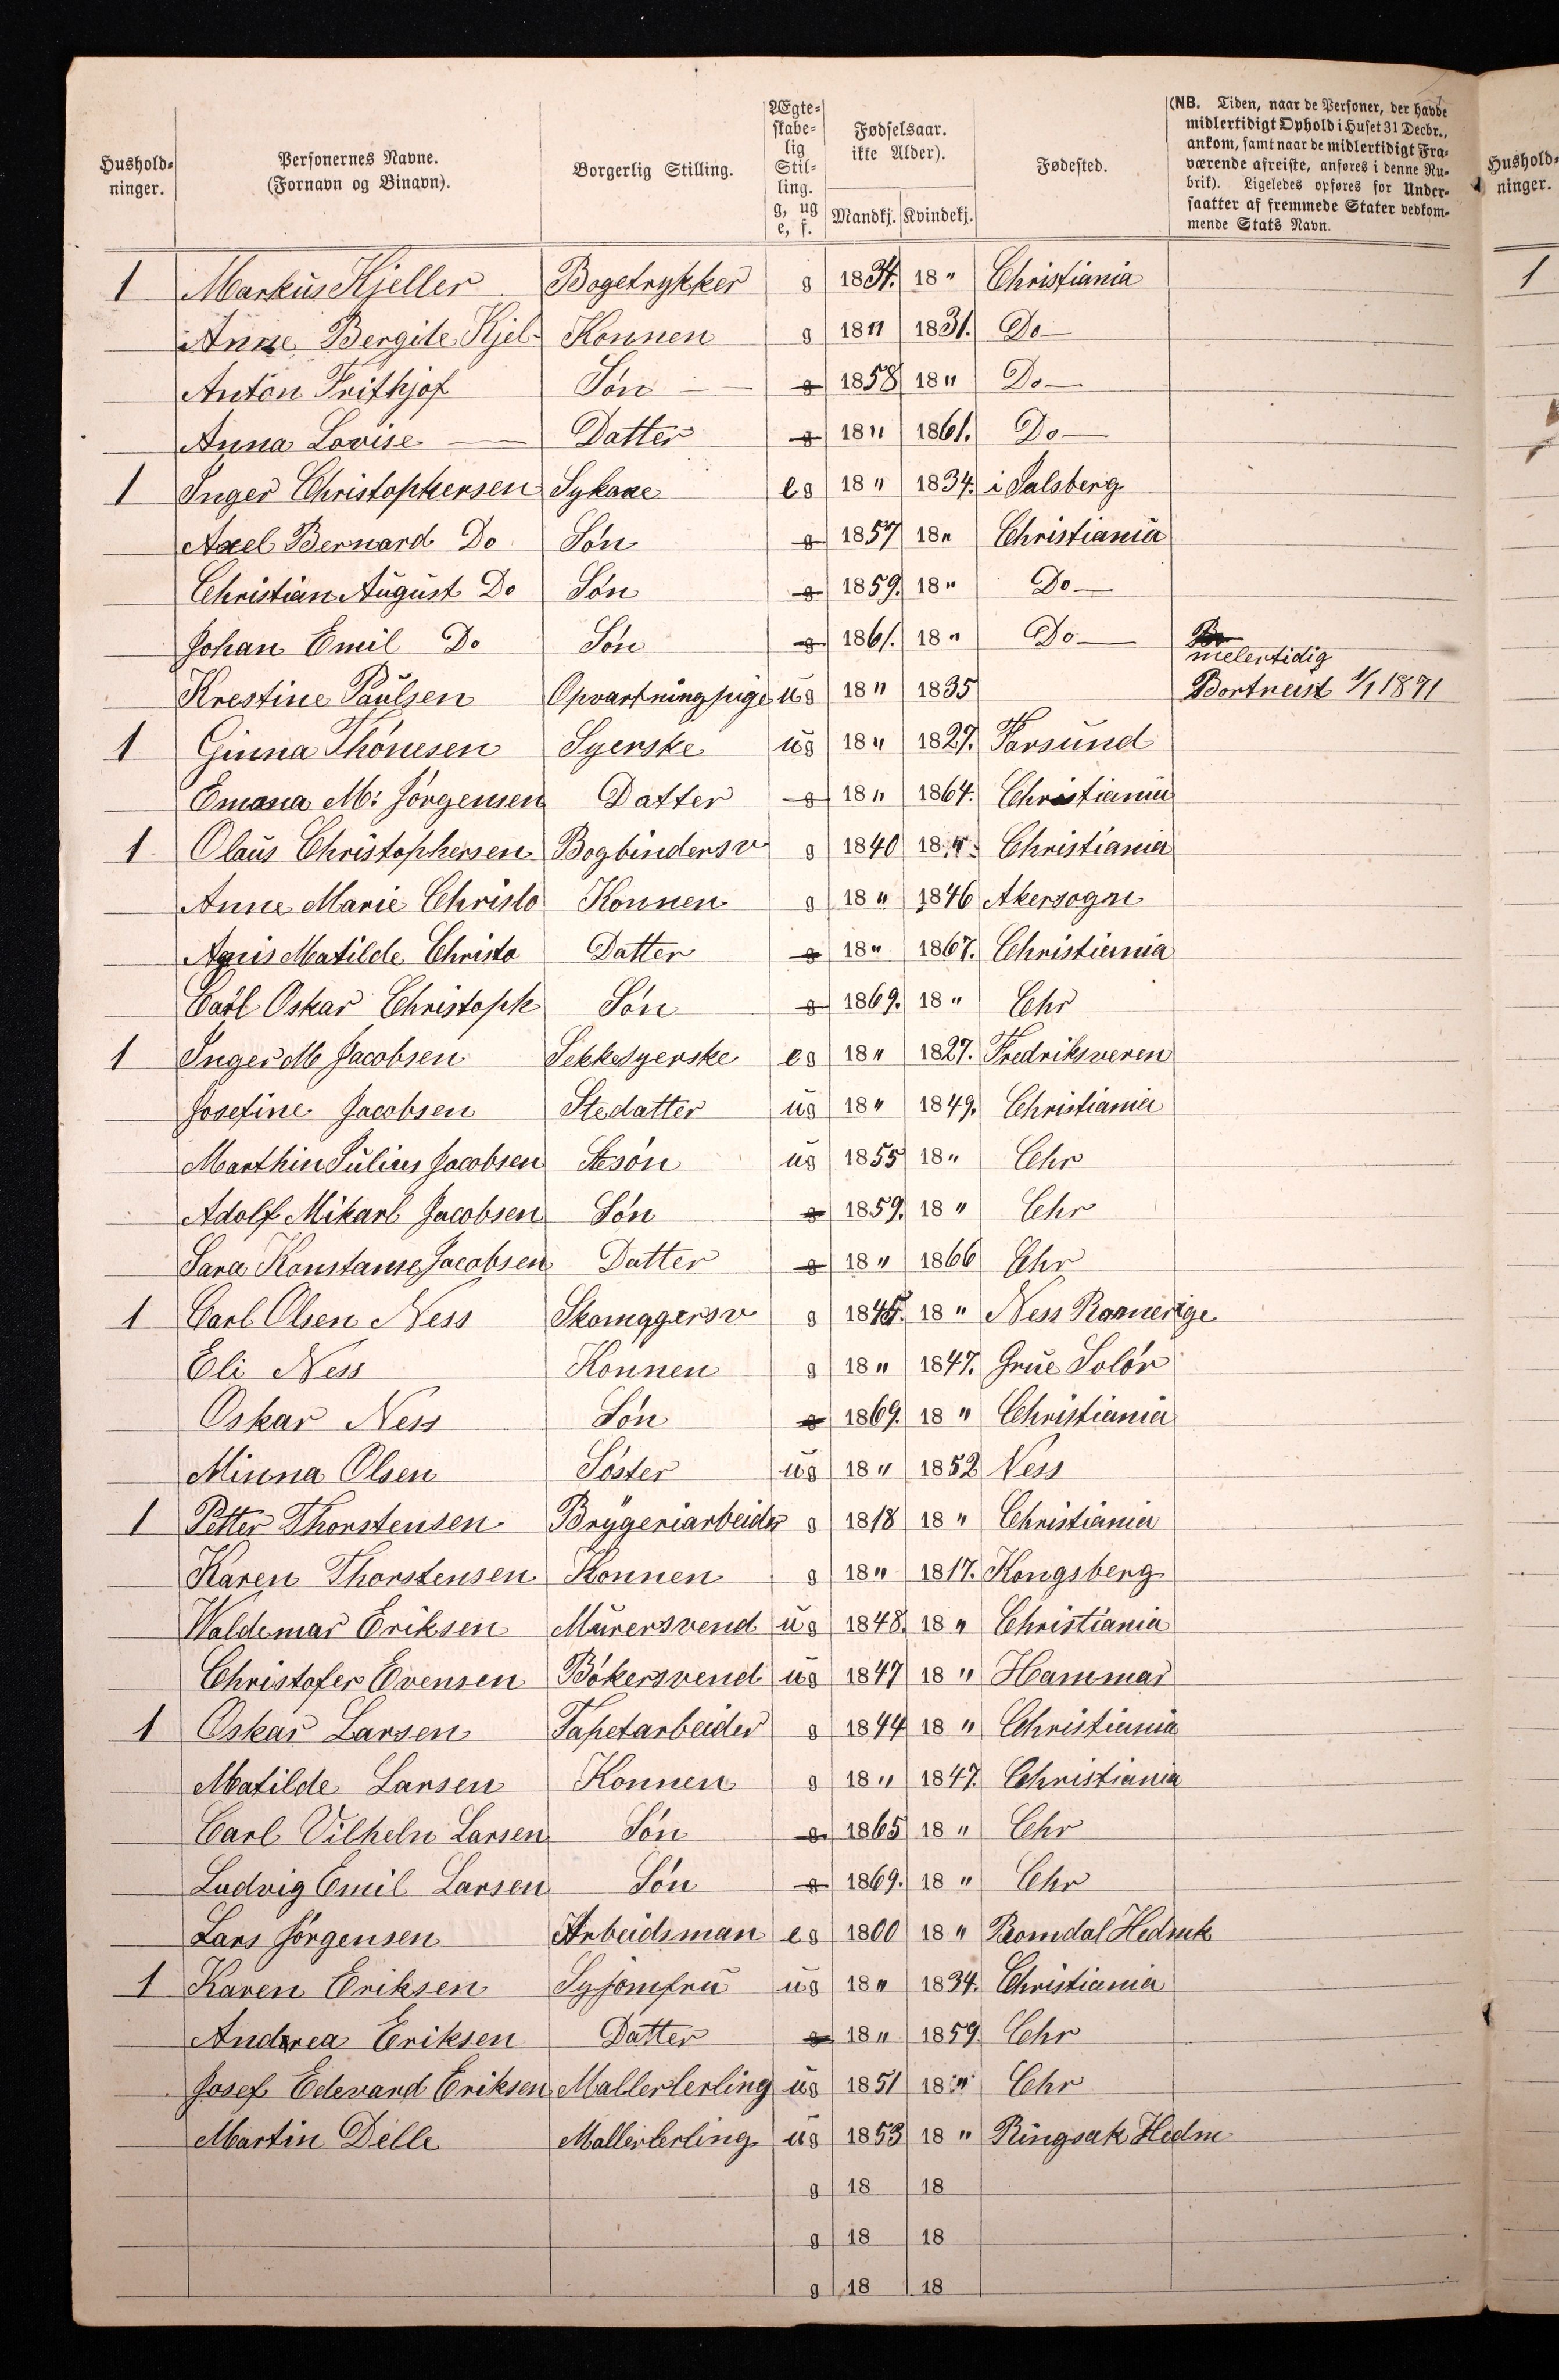 Hushold-
ninger.
Personernes Navne.
(Fornavn og Binavn).
Borgerlig Stilling.
Ægte-
skabe-
lig
Stil-
ling.
g, ug
e, f.
Fødselsaar.
ikke Alder).
Mandkj. Kvindekj.
Fødested.
(NB. Tiden, naar de Personer, der havde
midlertidigt Ophold i Huset 31 Decbr.,
ankom, samt naar de midlertidigt Fra-
værende afreiste, anføres i denne Ru-
brik). Ligeledes opføres for Under-
saatter af fremmede Stater vedkom-
mende Stats Navn.
Hushold-
ninger.
1 Markus Kjeller Bogetrykker g 1834. 18 " Christiania 1
Anne Bergite Kjel- Konnen g 18 " 1831. Do
Anton Frithjof Søn g 1858 18 " Do
Anna Lovise Datter g 18 " 1861. Do
1 Inger Christophersen Sykane eg 18 " 1834. i Salsberg
Axel Bernard Do Søn g 1857 18 " Christiania
Christian August Do Søn g 1859. 18 " Do
Johan Emil Do Søn g 1861. 18 " Do
melertidig
Krestine Paulsen Opvartningpige ug 18 " 1835 Bortreist 1/1 1871
1 Ginna Thönesen Syerske ug 18 " 1827. Farsund
Emma M: Jørgensen Datter g 18 " 1864. Christiania
1 Olaus Christophersen Bogbindersv g 1840 18 " Christiania
Anne Marie Christo Konnen g 18 " 1846 Akersogn
Agnis Matilde Christo Datter g 18 " 1867. Christiania
Carl Oskar Christoph Søn g 1869. 18 " Chr
1 Inger M Jacobsen Sekkesyerske eg 18 " 1827. Fredriksveren
Josefine Jacobsen Stedatter ug 18 " 1849. Christiania
Marthin Julius Jacobsen Stesøn ug 1855 18 " Chr
Adolf Mikarl Jacobsen Søn g 1859. 18 " Chr
Sara Konstanse Jacobsen Datter g 18 " 1866 Chr
1 Carl Olsen Ness Skomagersv g 1845. 18 " Ness Romerige
Eli Ness Konnen g 18 " 1847. Grue Solør
Oskar Ness Søn g 1869. 18 " Christiania
Minna Olsen Søster ug 18 " 1852 Ness
1 Petter Thorstensen Brygeriarbeider g 1818 18 " Christiania
Karen Thorstensen Konnen g 18 " 1817. Kongsberg
Waldemar Eriksen Murersvend ug 1848. 18 " Christiania
Christofer Evensen Bøkersvend ug 1847 18 " Hammar
1 Oskar Larsen Tapetarbeider g 1844 18 " Christiania
Matilde Larsen Konnen g 18 " 1847. Christiania
Carl Vilheln Larsen Søn g 1865 18 " Chr
Ludvig Emil Larsen Søn g 1869. 18 " Chr
Lars Jørgensen Arbeidsman eg 1800 18 " Romdal Hedmk
1 Karen Eriksen Syjomfru ug 18 " 1834. Christiania
Andrea Eriksen Datter g 18 " 1859. Chr
Josef Edevard Eriksen Mallerlerling ug 1851 18 " Chr
Martin Delle Mallerlerling ug 1853 18 " Ringsak Hedm
g 18 18
g 18 18
g 18 18